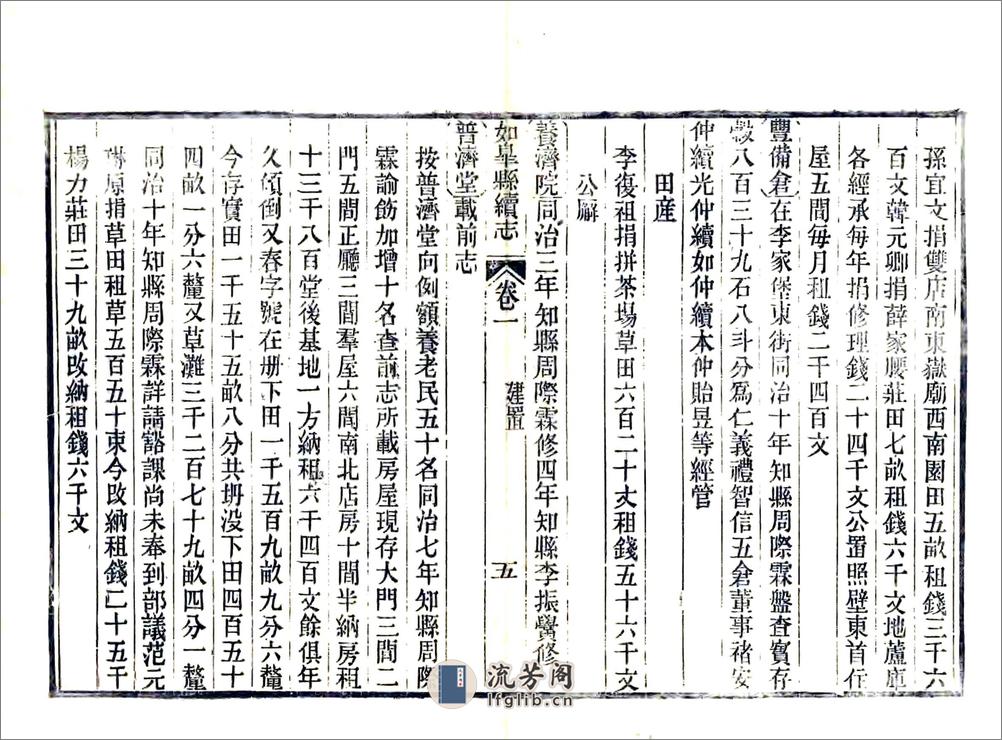 孫宜文捐雙店南東嶽廟西南園田五畝租錢三千六
百文韓元卿捐薛家腰莊田七畝租錢六千文地蘆庫
各經承每年捐修理錢二十四千文公置照壁東首住
屋五間每月租錢二千四百文
豐備倉在李家堡東街同治十年知縣周際霖盤查實存
穀八百三十九石八斗分爲仁義禮智信五倉董事褚安
仲續光仲續如仲續本仲貽昱等經管
田産
李復祖捐拼茶場草田六百二十丈租錢五十六千文
公廨
養濟院同治三年知縣周際霖修四年知縣李振黌修
如皋縣續志 卷一 建置 五
普濟堂載前志
按普濟堂向例額養老民五十名同治七年知縣周際
霖諭飭加增十名查前志所載房屋現存大門三間二
門五間正廳三間羣屋六間南北店房十間半納房租
十三千八百堂後基地一方納租六千四百文餘俱年
久傾倒又春字號在册下田一千五百九畝九分六釐
今存實田一千五十五畝八分共坍没下田四百五十
四畝一分六釐又草灘三千二百七十九畝四分一釐
同治十年知縣周際霖詳請豁課尚未奉到部議范元
琳原指草田租草五百五十束今改納租錢二十五千
楊力莊田三十九畝改納租錢六千文
流芳阁
lfglib.cn